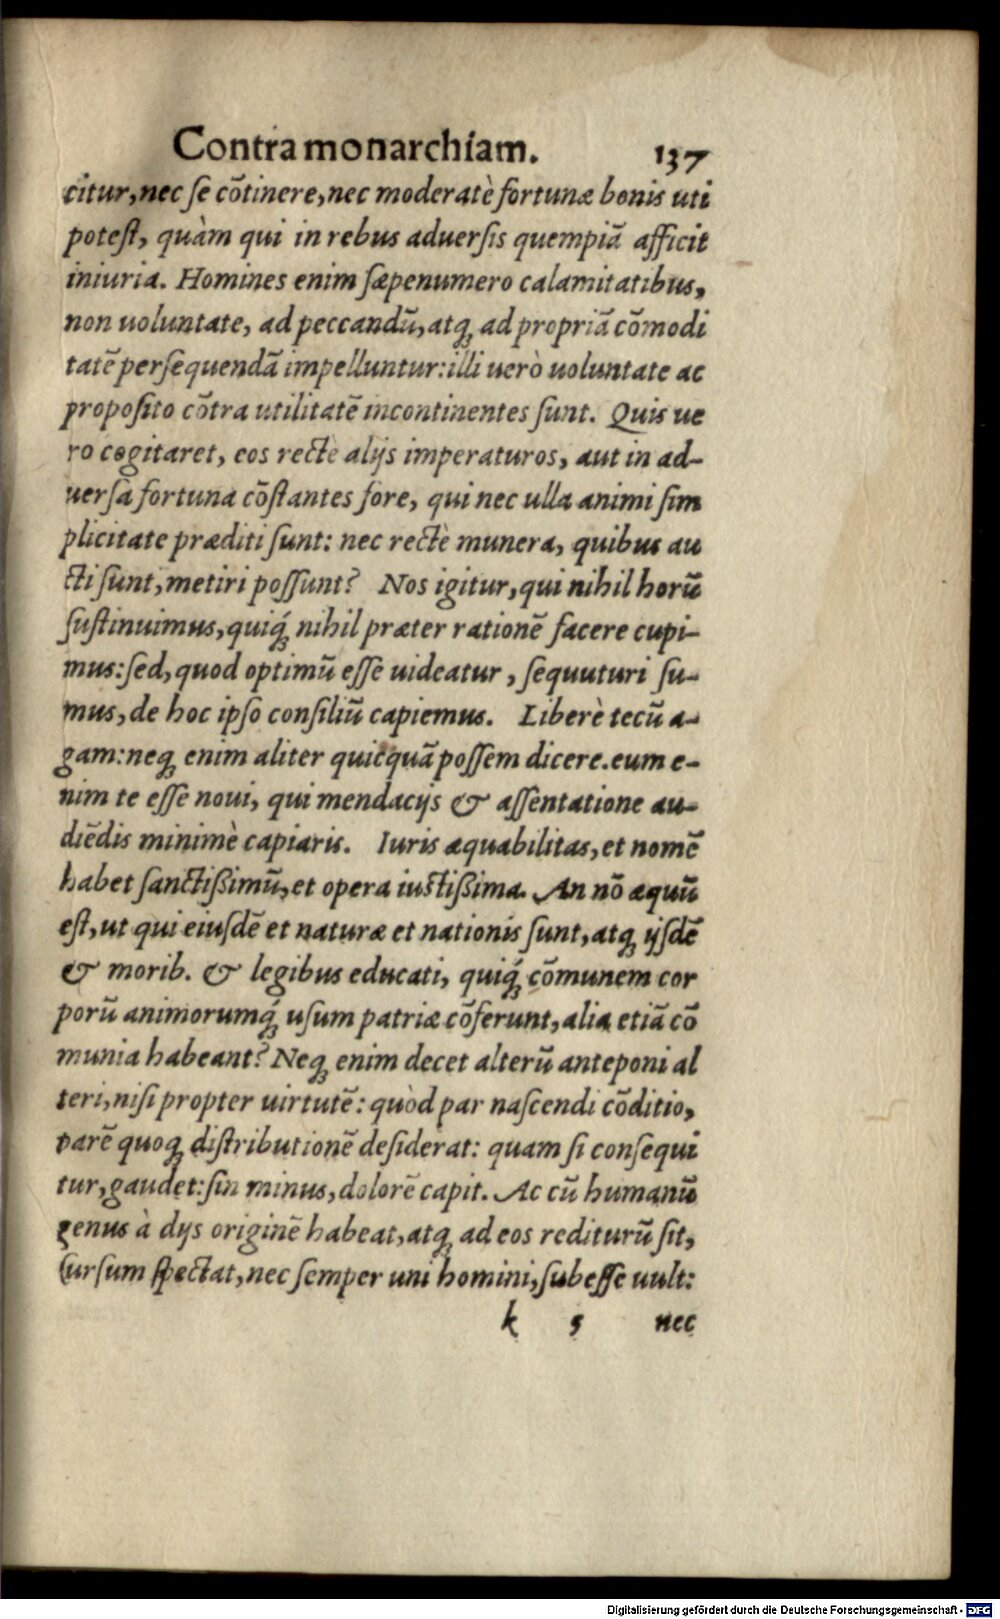 Contra monarchiam. 137
citur, nec ſe cõtinere, nec moderatè fortunæ bonis uti
poteſt, quàm qui in rebus aduerſis quempiã afficit
iniuria. Homines enim ſæpenumero calamitatibus,
non uoluntate, ad peccandũ, atq́; ad propriã cõmodi
tatẽ perſequendã impelluntur: illi uerò uoluntate ac
propoſito cõtra utilitatẽ incontinentes ſunt. Quis ue
ro cogitaret, eos rectè alijs imperaturos, aut in ad-
uerſa fortuna cõſtantes fore, qui nec ulla animi ſim
plicitate præditi ſunt: nec rectè munera, quibus au
cti ſunt, metiri poſſunt? Nos igitur, qui nihil horũ
ſuſtinuimus, quiq́; nihil præter rationẽ facere cupi-
mus: ſed, quod optimũ eſſe uideatur, ſequuturi ſu-
mus, de hoc ipſo conſiliũ capiemus. Liberè tecũ a-
gam: neq; enim aliter quicquã poſſem dicere. eum e-
nim te eſſe noui, qui mendacijs & aſſentatione au-
diẽdis minimè capiaris. Iuris æquabilitas, et nomẽ
habet ſanctiſsimũ, et opera iuſtiſsima. An nõ æquũ
eſt, ut qui eiuſdẽ et naturæ et nationis ſunt, atq; ijſdẽ
& morib. & legibus educati, quiq́; cõmunem cor
porũ animorumq́; uſum patriæ cõferunt, alia etiã cõ
munia habeant? Neq; enim decet alterũ anteponi al
teri, niſi propter uirtutẽ: quòd par naſcendi cõditio,
parẽ quoq; diſtributionẽ deſiderat: quam ſi conſequi
tur, gaudet: ſin minus, dolorẽ capit. Ac cũ humanũ
genus à dijs originẽ habeat, atq; ad eos rediturũ ſit,
ſurſum ſpectat, nec ſemper uni homini, ſubeſſe uult:
k 5 nec
Digitalisierung gefördert durch die Deutsche Forschungsgemeinschaft - DFG